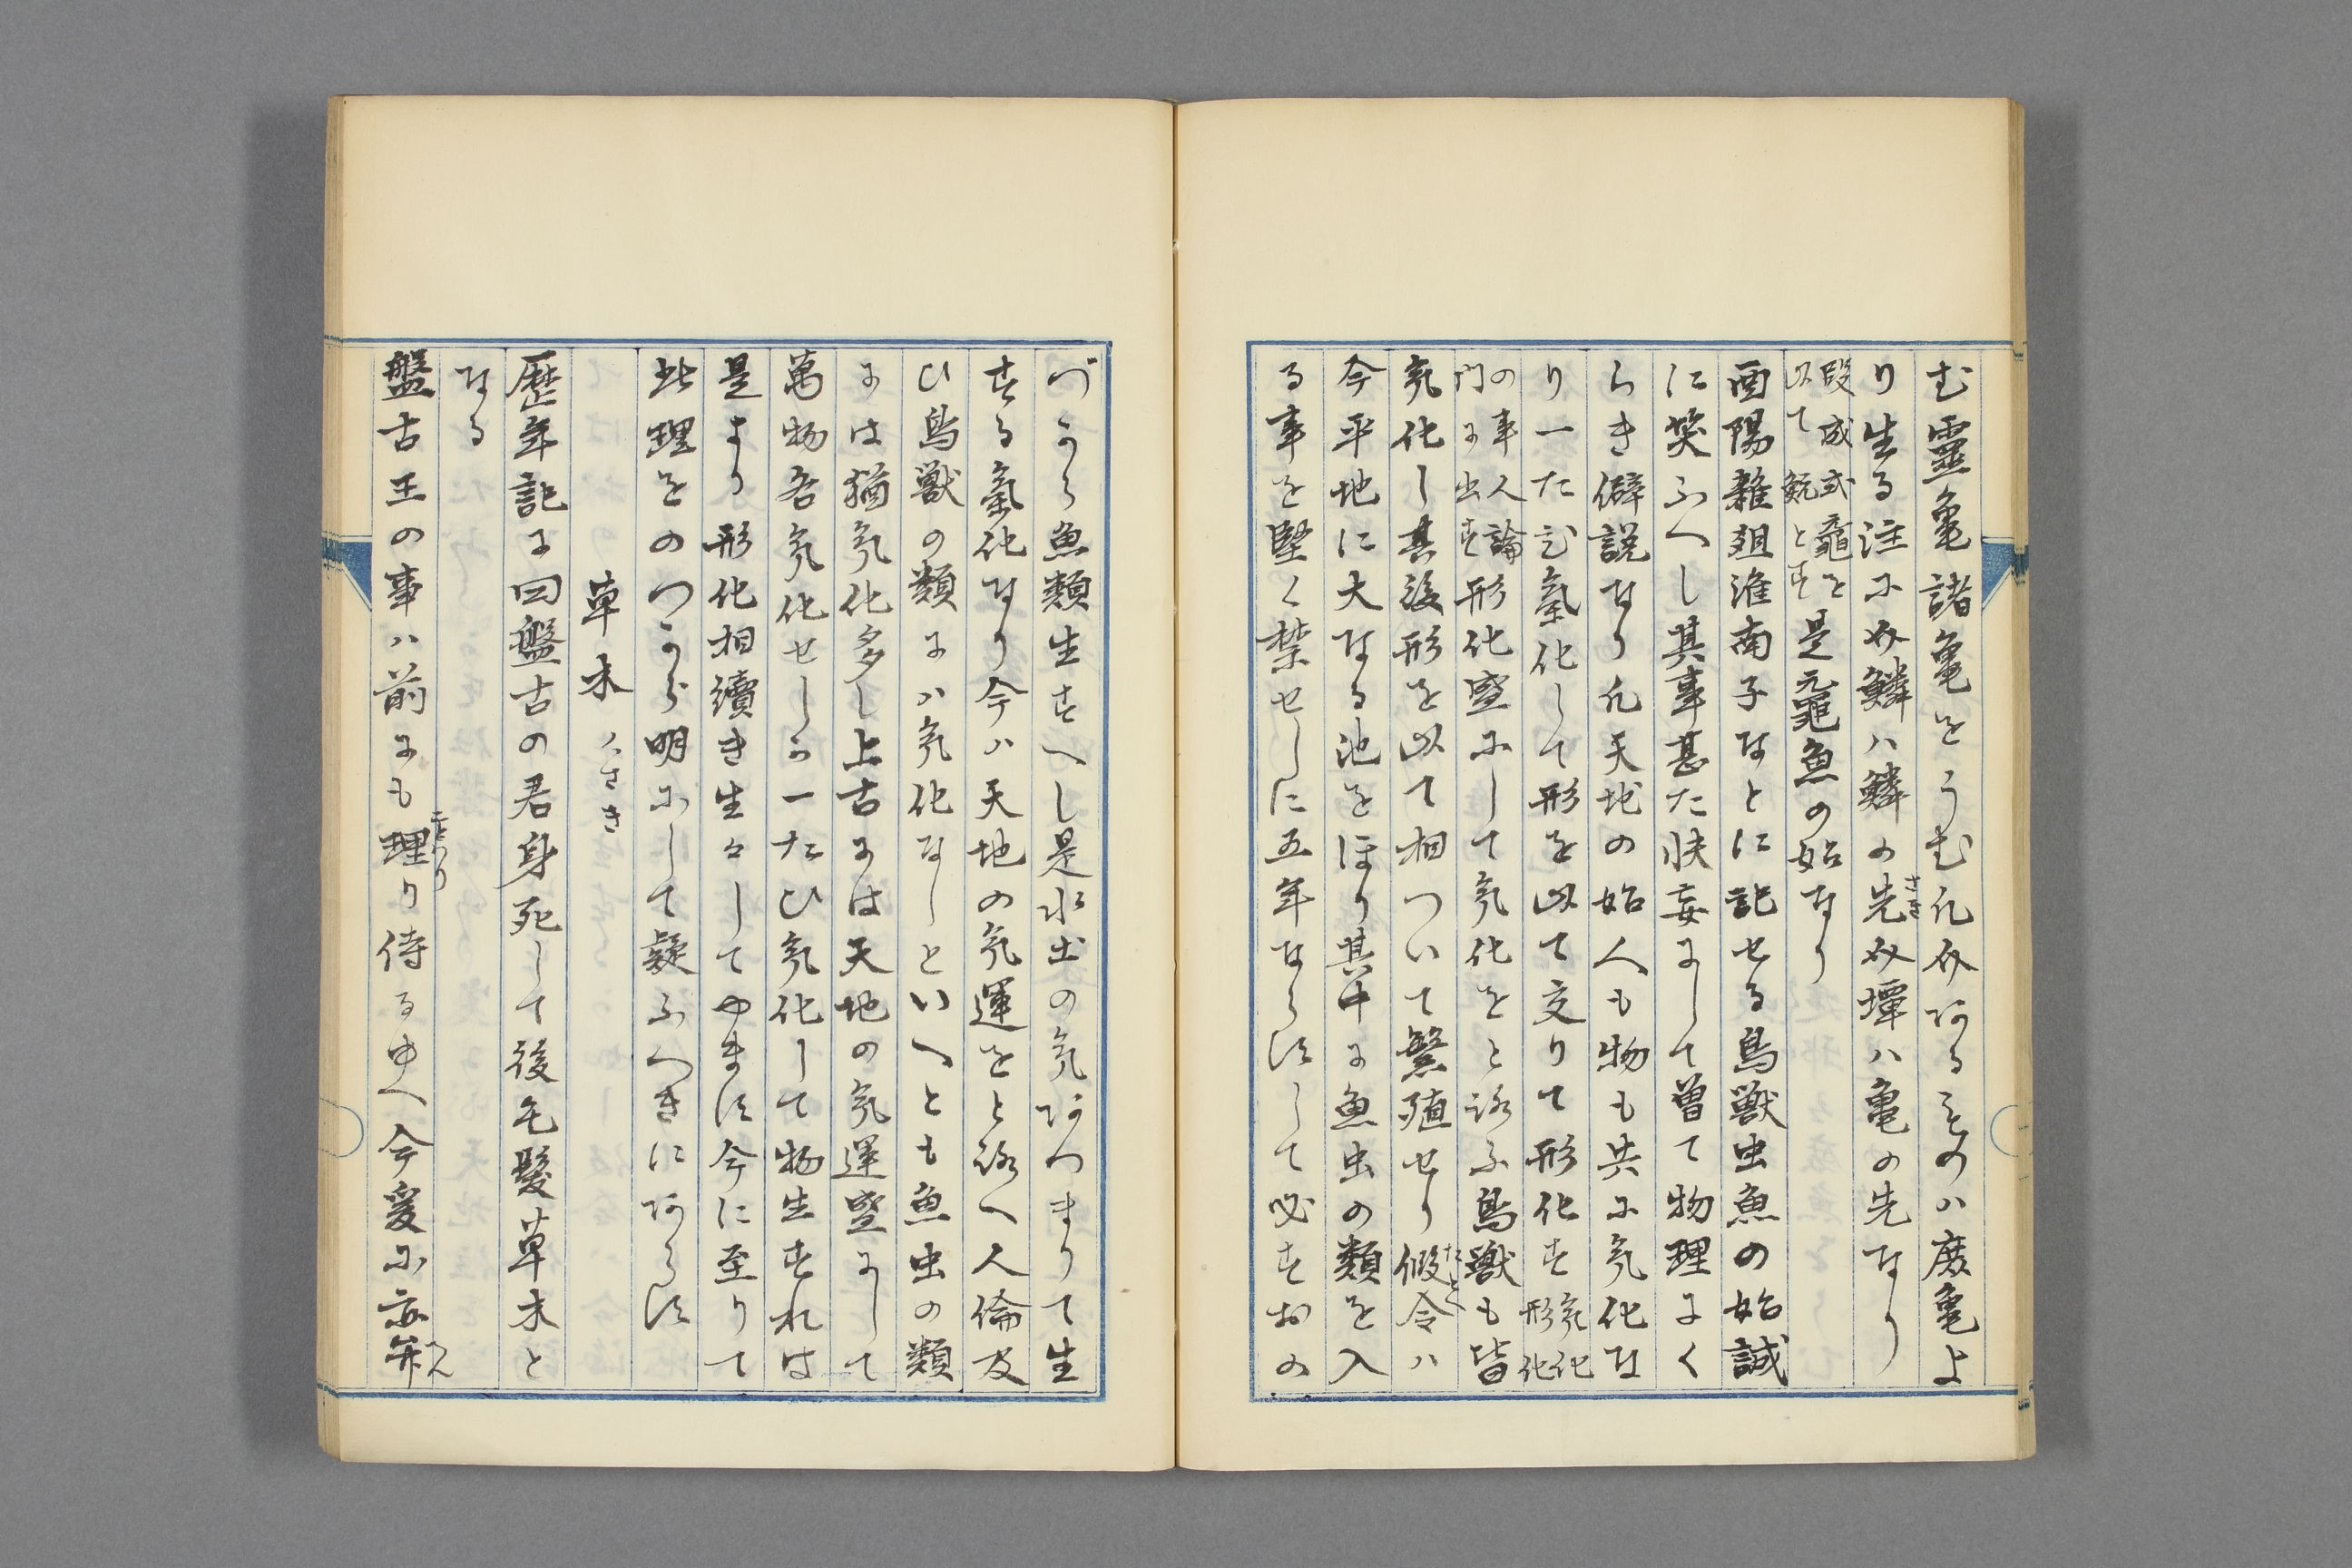 む靈亀諸亀をうむ凡介あるものハ庶亀よ
り生る注に介鱗ハ鱗の先さき介墠ハ亀の先なり
段成式龜を以て魭とす是黿魚の始なり
酉陽雜爼淮南子なとに記せる鳥獣虫魚の始誠
に笑ふへし其事甚た怪妄にして曽て物理にく
らき僻説なり凡天地の始人も物も共に気化な
り一たひ氣化して形を以て交りて形化す気化形化
の事人論門に出す形化盛にして気化をとろふ鳥獣も皆
気化し其後形を以て相ついて繁殖せり假令たとへハ
今平地に大なる池をほり其中に魚虫の類を入
る事を堅く禁せしに五年ならすして必すおの
づから魚類生すへし是水土の気あつまりて生
する氣化なり今ハ天地の気運をとろへ人倫及
ひ鳥獣の類にハ気化なしといへとも魚虫の類
には猶気化多し上古には天地の気運盛にして
萬物各気化せしか一たひ気化して物生すれは
是より形化相續き生々してやます今に至りて
此理をのつから明にして疑ふへきにあらす
草木くさき
歴年記に曰盤古の君身死して後毛髪草木と
なる
盤古王の事ハ前にも理ことわり侍るゆへ今爰に亦弁へん